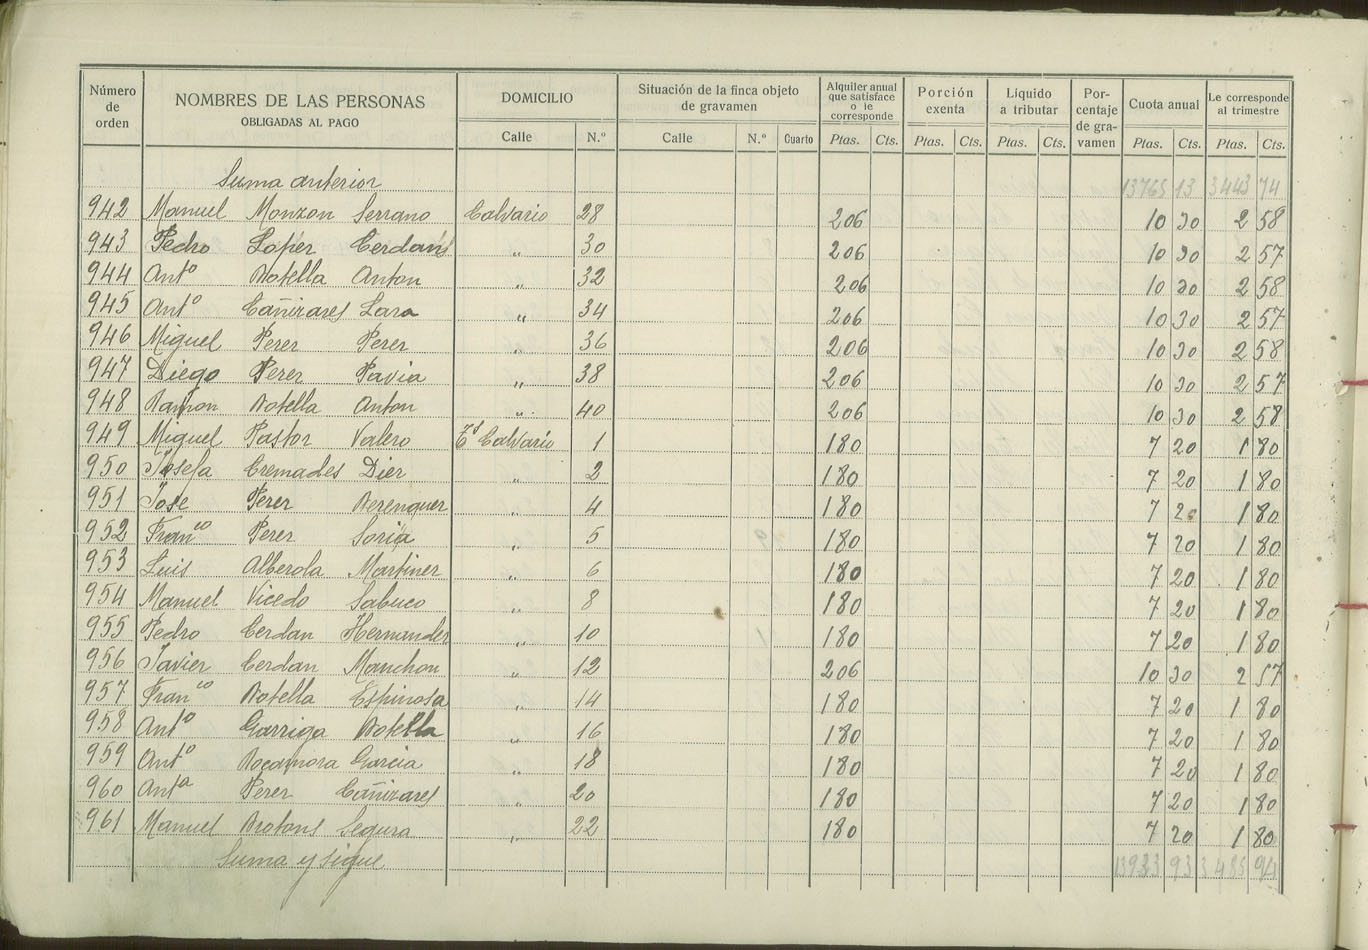 Número de orden NOMBRES DE LAS PERSONAS OBLIGADAS AL PAGO DOMICILIO Situación de la finca objeto de gravamen Alquiler anual que satisface o le corresponde Porción exenta Líquido a tributar Porcentaje de gravamen Cuota anual Le corresponde al trimestre
Calle N.º Calle N.º Cuarto Ptas. Cts. Ptas. Cts. Ptas. Cts. Ptas. Cts. Ptas. Cts.
Suma anterior 13765 13 3443 74
942 Manuel Monzon Serrano Calvario 28 206 10 30 2 58
943 Pedro Loper Cerdan 〃 30 206 10 30 2 57
944 Antº Botella Anton 〃 32 206 10 30 2 58
945 Antº Cañizares Lara 〃 34 206 10 30 2 57
946 Miguel Perez Perez 36 206 10 30 2 58
947 Diego Perez Pavia 〃 38 206 10 30 2 57
948 Ramon Botella Anton 〃 40 206 10 30 2 58
949 Miguel Pastor Valero Calvario 1 180 7 20 1 80
950 Josefa Cremades Diez 〃 2 180 7 20 1 80
951 Jose Perez Berenguer 〃 4 180 7 20 1 80
952 Franco Perez Soria 〃 5 180 7 20 1 80
953 Luis Alberola Martinez 〃 6 180 7 20 1 80
954 Manuel Vicedo Sabuco 〃 8 180 7 20 1 80
955 Pedro Cerdan Hernandez 〃 10 180 7 20 1 80
956 Javier Cerdan Manchon 〃 12 206 10 30 2 57
957 Franco Botella Espinosa 〃 14 180 7 20 1 80
958 Antº Garriga Botella 〃 16 180 7 20 1 80
959 Antº Rocamora Garcia 〃 18 180 7 20 1 80
960 Antª Perez Cañizares 〃 20 180 7 20 1 80
961 Manuel Brotons Segura 〃 22 180 7 20 1 80
Suma y sigue 13933 93 3485 94